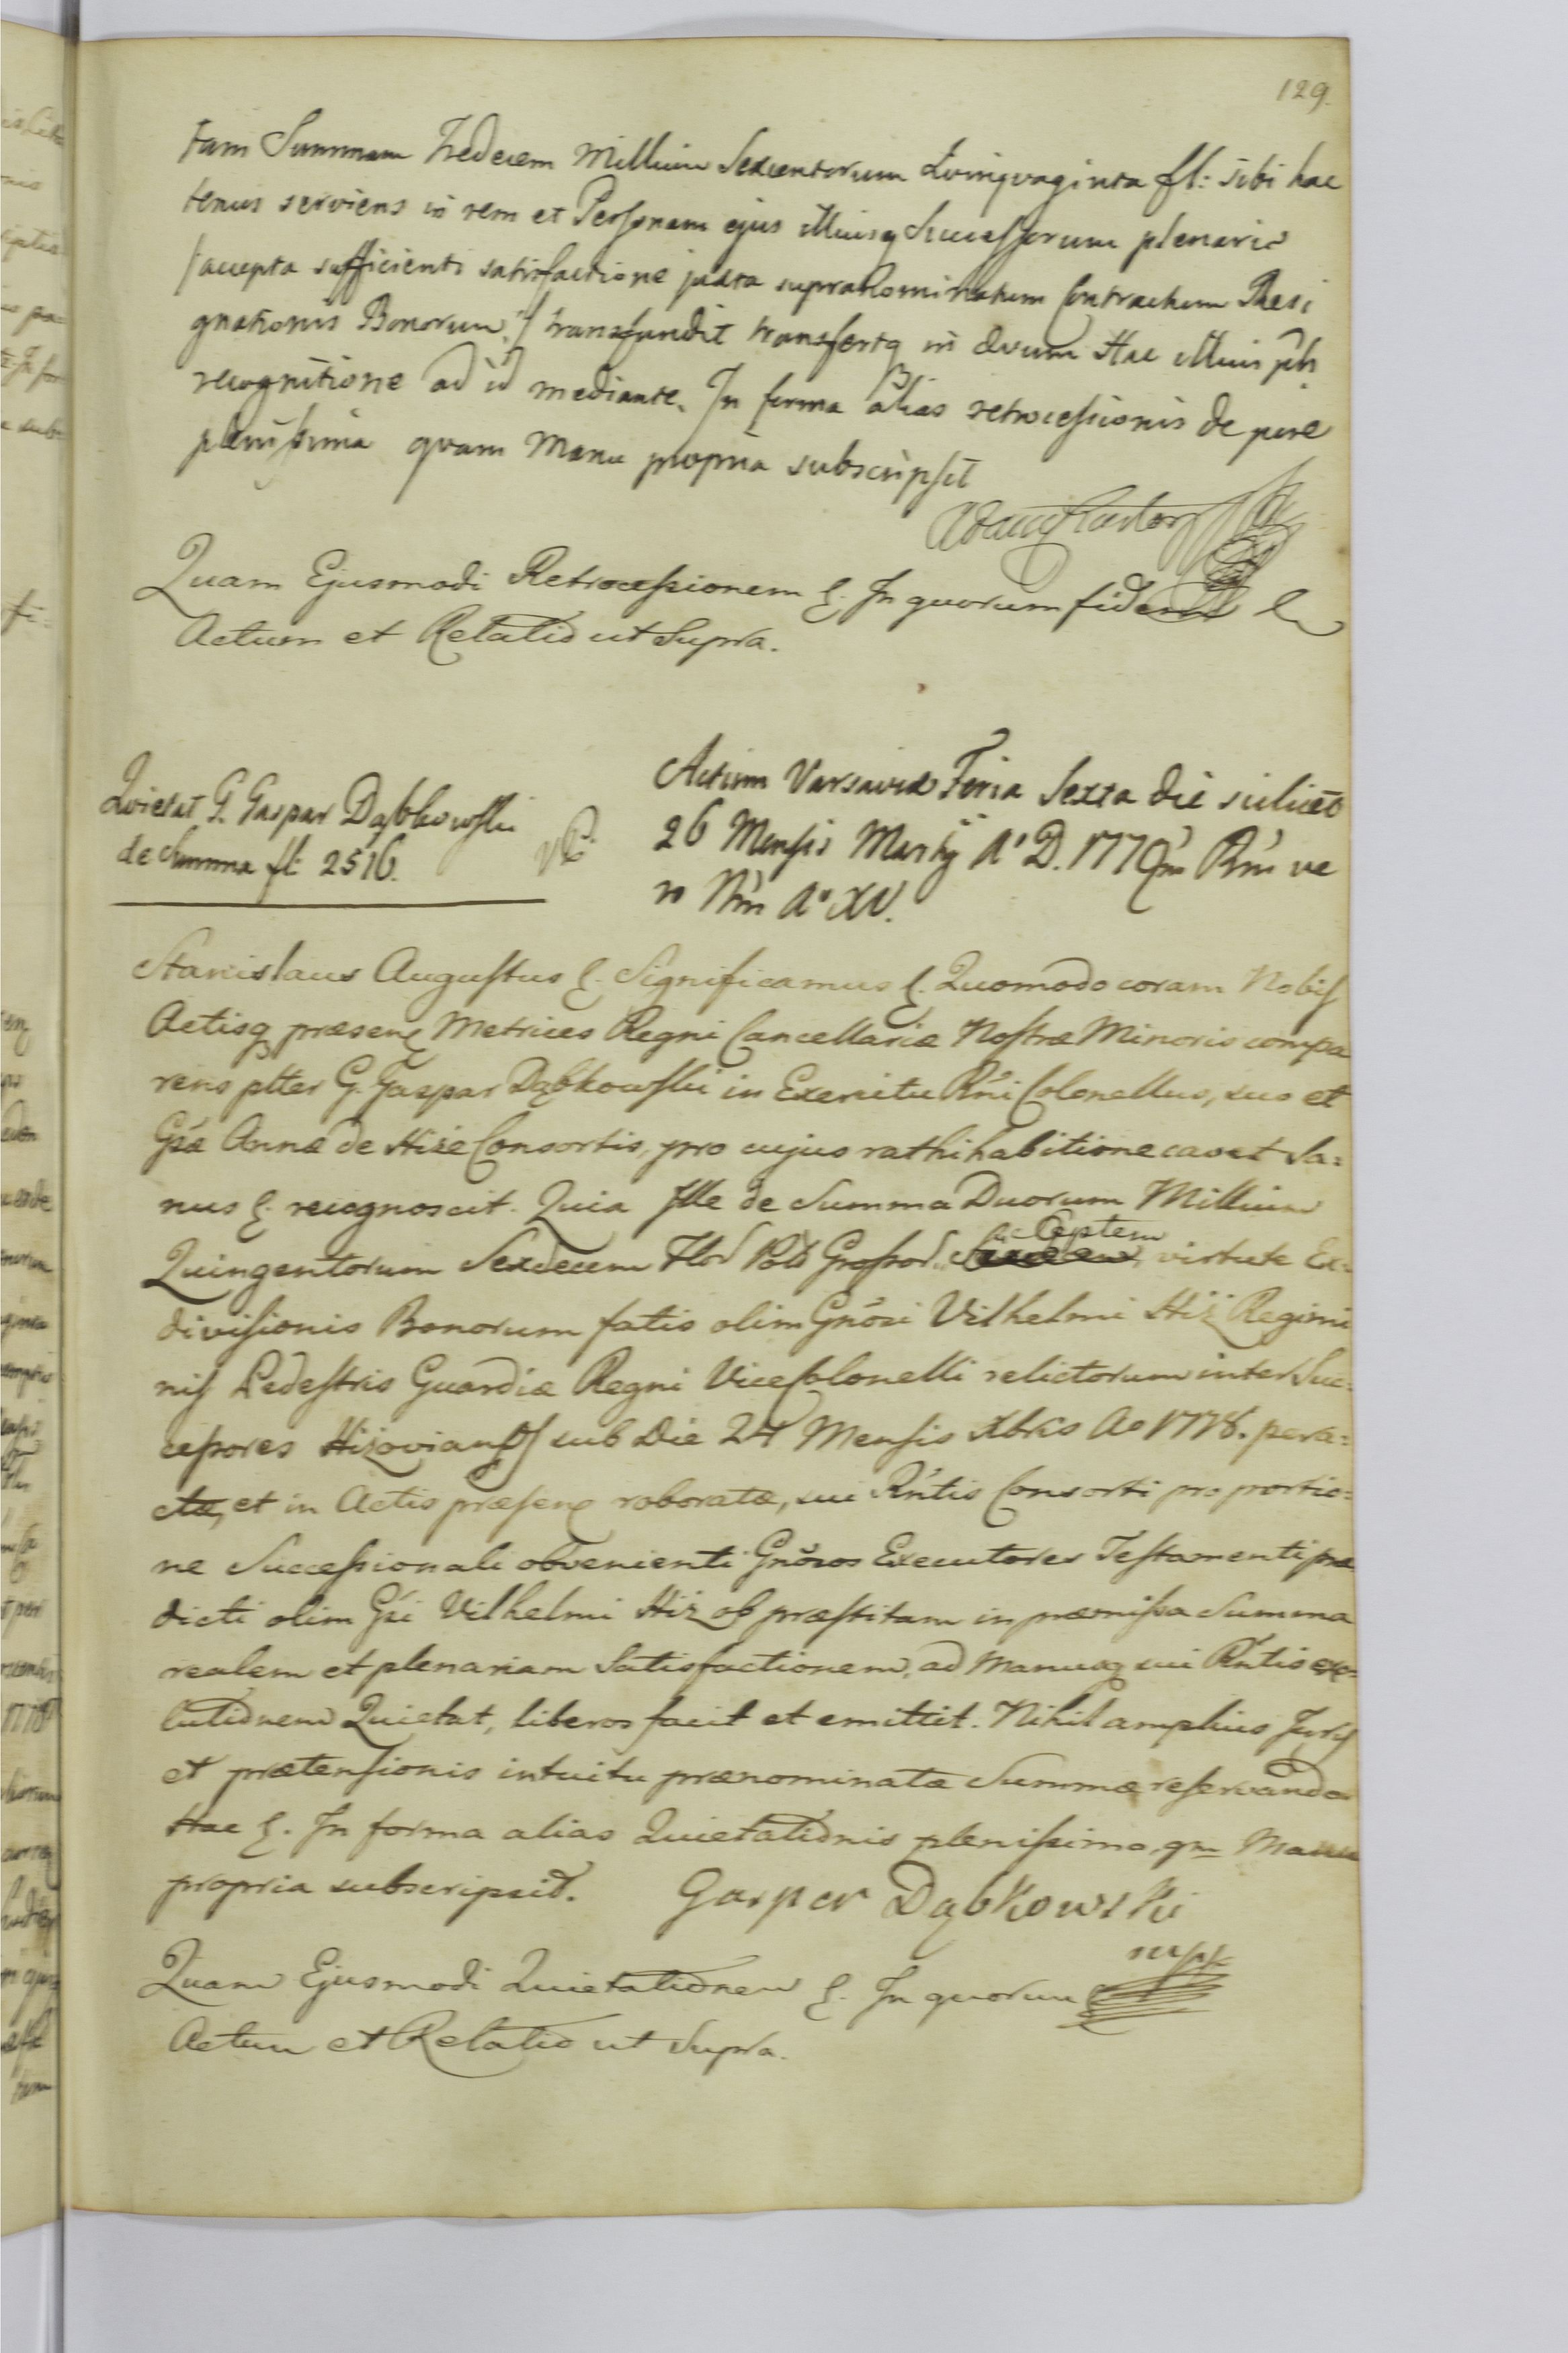 129.
tam Summam Tredecem Millium Sexcentorum Quinquaginta fl: sibi hac
tenus serviens in rem et Personam ejus Illiusq Successorum plenarie
/accepta sufficienti satisfactione juxta supraNominatum Contractum Resi
gnationis Bonorum/ transfundit transfertq in Ævum Hac Illius
recognitione ad id mediante. In forma alias retrocessionis de jure
plenissima quam Manu propria subscripsit
Quam Ejusmodi Retrocessionem &. In quorum fidem &
Actum et Relatio ut Supra.
Quietat G. Gaspar Dąbkowski
de Summa fl: 2516.
Actum Varsaviæ Feria Sexta die scilicet
26 Mensis Martij A° D. 1779 Rni ve
ro Nri A° XV.
Stanislaus Augustus &. Significamus &. Quomodo coram Nobis
Actisq præsen Metrices Regni Cancellariæ Nostræ Minoris compa
rens plter G. Gaspar Dąbkowski in Exercitu Rni Colonellus, suo et
Gsæ Annæ de Hiże Consortis, pro cujus rathihabitione cavet Sa=
nus &. recognoscit. Quia Ille de Summa Duorum Millium
Quingentorum Sexdecem Flor Pol Grossor Septem virtute Ex=
divisionis Bonorum fatis olim Gnosi Vilhelmi Hiż Regimi
nis Pedestris Guardiæ Regni ViceColonelli relictorum inter Suc=
cessores Hiżovian sub Die 24 Mensis Xbris Ao 1778. pera=
ctæ, et in Actis præsen roboratæ, sui Rntis Consorti pro portio=
ne Successionali obvenienti Gnosos Executores Testamenti præ
dicti olim Gsi Vilhelmi Hiż ob præstitam in præmissa Summa
realem et plenariam Satisfactionem, ad Manusq sui Rntis exo=
lutionem Quietat, liberos facit et emittit. Nihil amplius Juris
et prætensionis intuitu prænominatæ Summæ reservando
Hac &. In forma alias Quietationis plenissima, qm Manu
propria subscripsit. Gasper Dąbkowski
mpp
Quam Ejusmodi Quietationem &. In quorum
Actum et Relatio ut Supra.